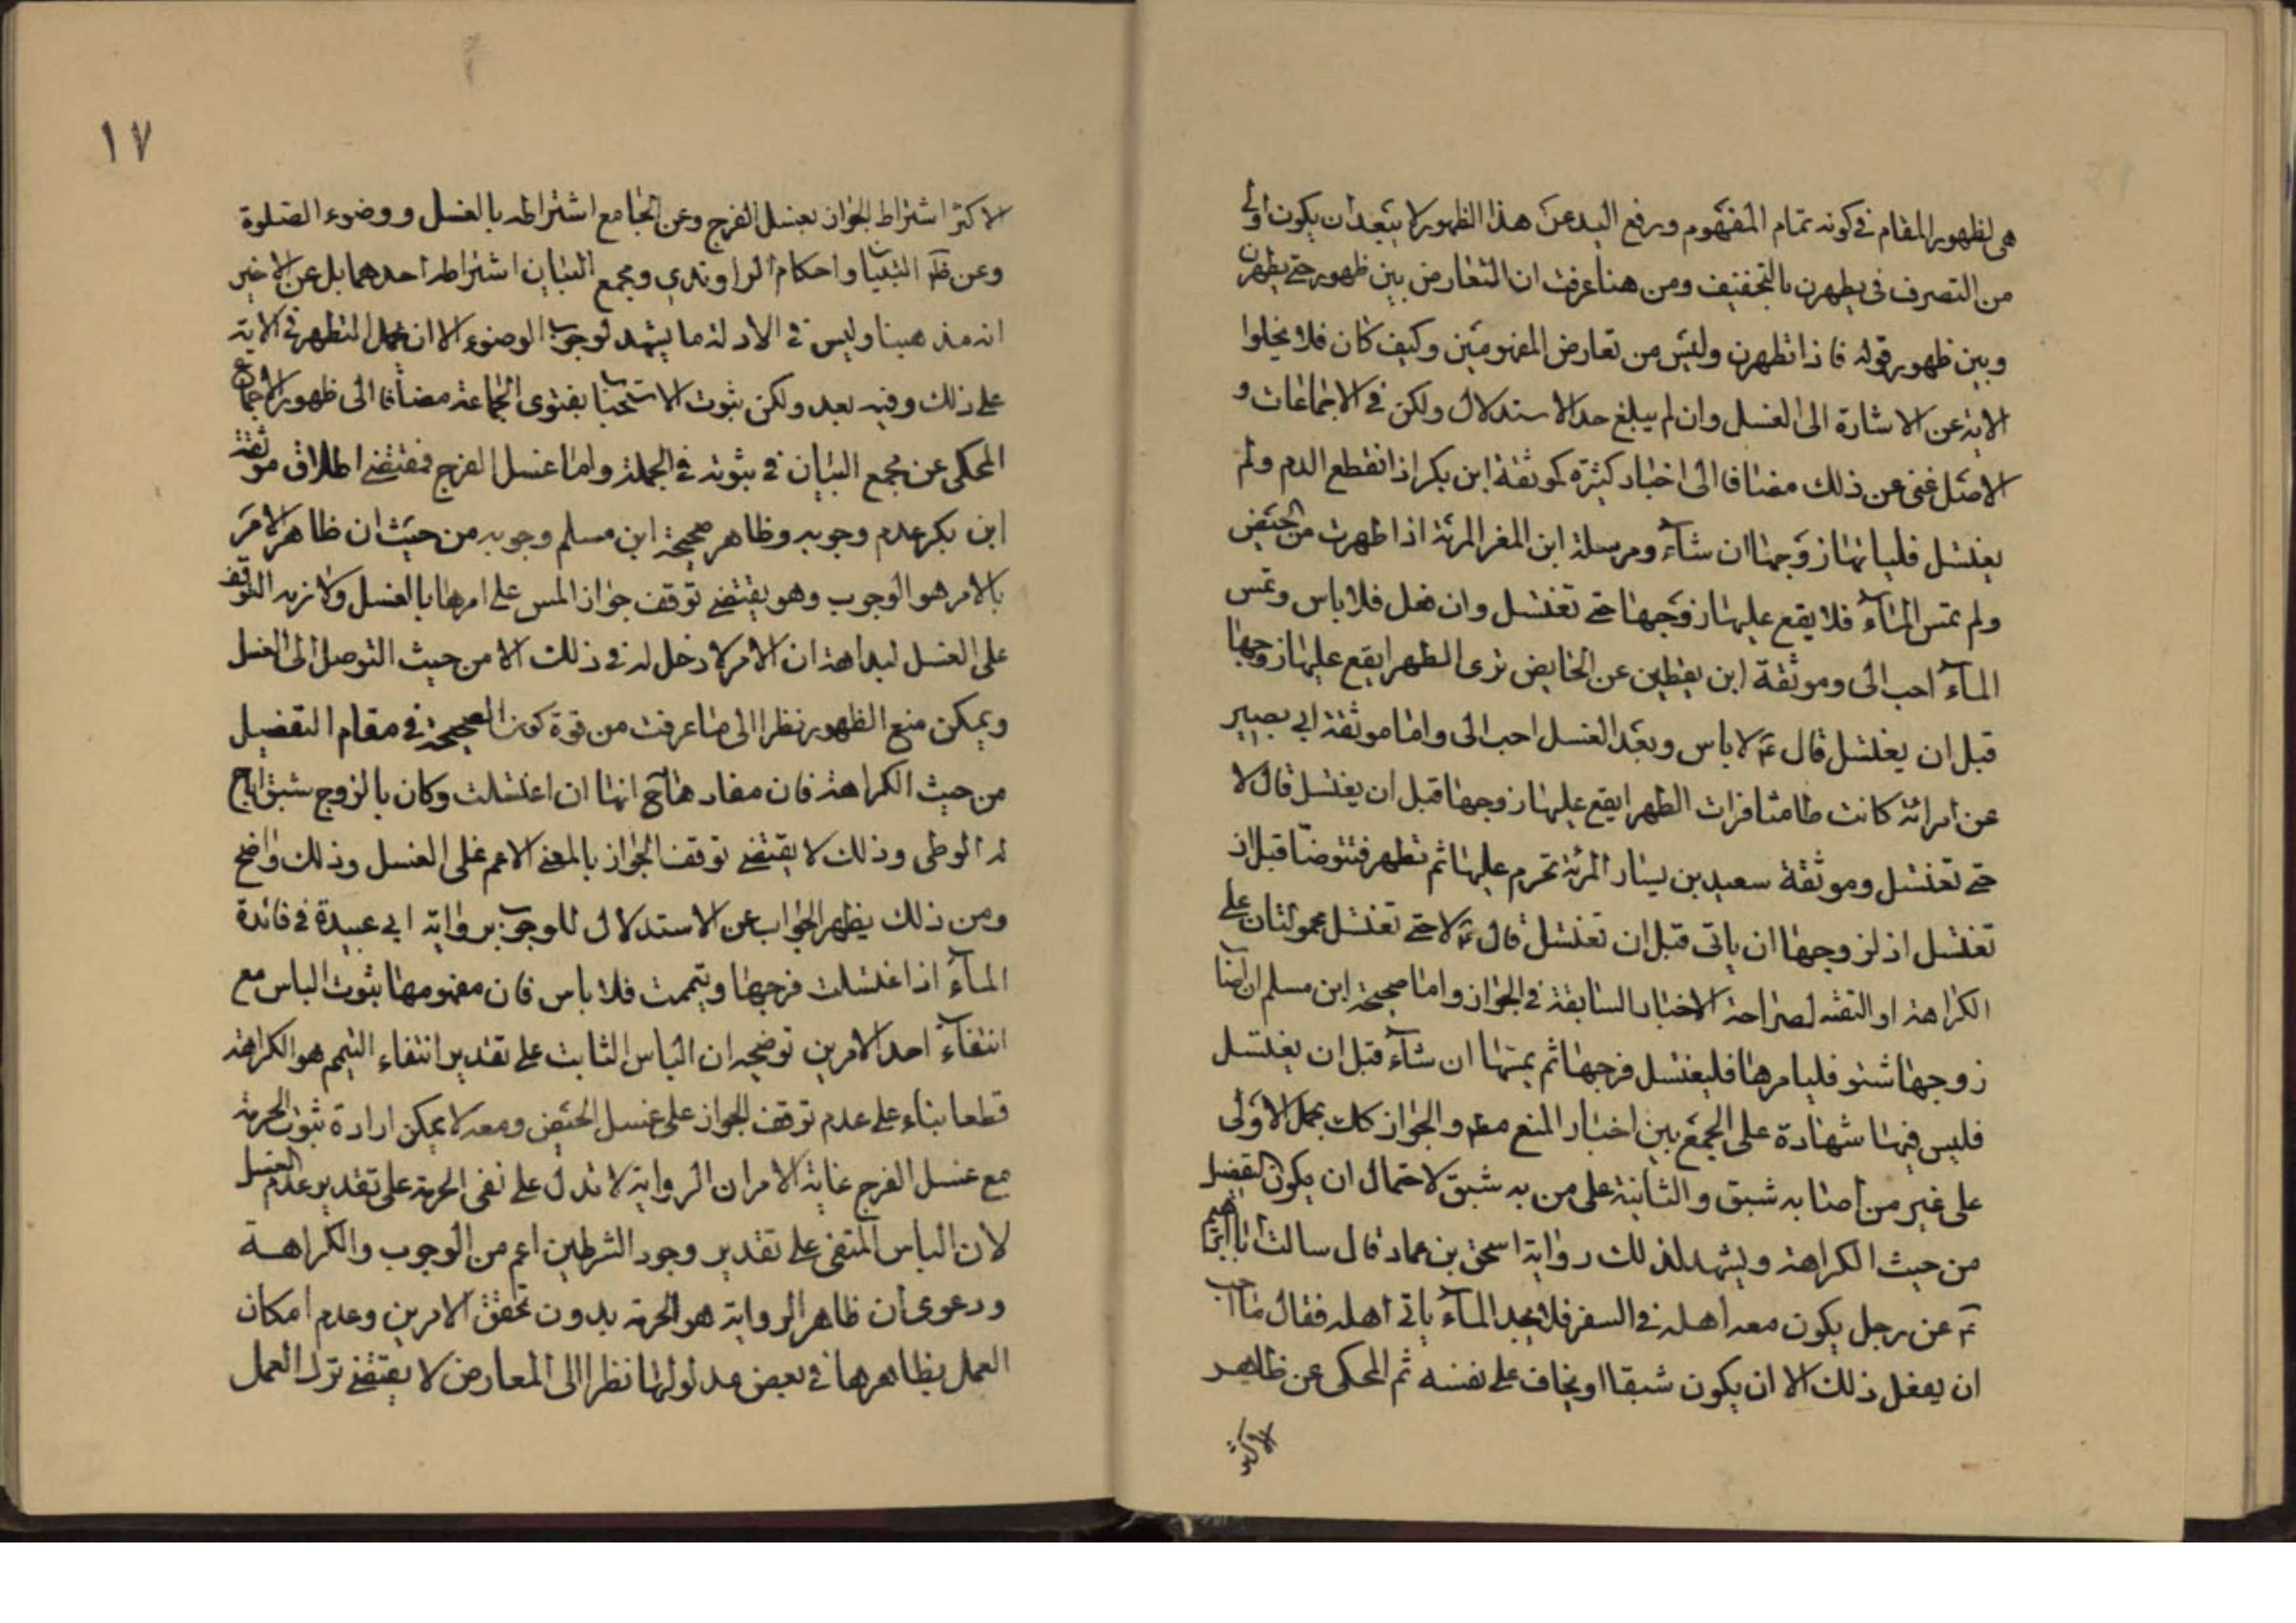 هى لظهور المقام فى كونه تمام المفهوم ورفع اليد عن هذا الظهور لا يبعد ان يكون اولى
من التصرف فى يطهرن بالتخفيف ومن هنا عرفت ان التعارض بين ظهور حتى يطهرن
وبين ظهور قوله فاذا تطهرن وليس من تعارض المفهومين وكيف كان فلا يخلوا
الاية عن الاشارة الى الغسل وان لم يبلغ حد الاستدلال ولكن فى الاجماعات و
الاصل غنى عن ذلك مضافا الى اخبار كثيرة كموثقة ابن بكر اذا انقطع الدم ولم
يغتسل فلياتها زوجها ان شاء ومرسلة ابن المغر المرئة اذا طهرت من الحيض
ولم تمس الماء فلا يقع عليها زوجها حتى تغتسل وان فعل فلا باس وتمس
الماء احب الى وموثقة ابن يقطين عن الحايض ترى الطهر ايقع عليها زوجها
قبل ان يغتسل قال ع لا باس وبعد الغسل احب الى واما موثقة ابى بصير
عن امرائة كانت طامثا فرات الطهر ايقع عليها زوجها قبل ان يغتسل قال لا
حتى تغتسل وموثقة سعيد بن يسار المرئة تحرم عليها ثم تطهر فتتوضا قبل ان
تغتسل اذ لزوجها ان ياتى قبل ان تغتسل قال ع لا حتى تغتسل محمولتان على
الكراهة او التقية لصراحة الاخبار السابقة فى الجواز واما صحيحة ابن مسلم ان اصاب
زوجها شبق فليامرها فليغتسل فرجها ثم يمسها ان شاء قبل ان يغتسل
فليس فيها شهادة على الجمع بين اخبار المنع مطم والجواز كك بحمل الاولى
على غير من اصابه شبق والثانية على من به شبق لاحتمال ان يكون التفصيل
من حيث الكراهة ويشهد لذلك رواية اسحق بن عمار قال سالت ابا ابراهيم
ع عن رجل يكون معه اهله فى السفر فلا يجد الماء ياتى اهله فقال ما احب
ان يفعل ذلك الا ان يكون شبقا او يخاف على نفسه ثم المحكى عن ظاهر
الاكثر
١٧
الاكثر اشتراط الجواز بغسل الفرج وعن الجامع اشتراطه بالغسل ووضوء الصلوة
وعن ظم التبيان واحكام الراوندي ومجمع البيان اشتراط احدهما بل عن الاخير
انه مذهبنا وليس فى الادلة ما يشهد لوجوب الوضوء الا ان يحمل التطهر فى الاية
على ذلك وفيه بعد ولكن ثبوت الاستحباب بفتوى الجماعة مضافا الى ظهور الاجماع
المحكى عن مجمع البيان فى ثبوته فى الجملة واما غسل الفرج فمقتضى اطلاق موثقة
ابن بكر عدم وجوبه وظاهر صحيحة ابن مسلم وجوبه من حيث ان ظاهر الامر
بالامر هو الوجوب وهو يقتضى توقف جواز المس على امرها بالغسل ولازمه التوقف
على الغسل لبداهة ان الامر لا دخل له فى ذلك الا من حيث التوصل الى الغسل
ويمكن منع الظهور نظرا الى ما عرفت من قوة كون الصحيحة فى مقام التفصيل
من حيث الكراهة فان مفادها ح انها ان اغتسلت وكان بالزوج شبق ابيح
له الوطى وذلك لا يقتضى توقف الجواز بالمعنى الاعم على الغسل وذلك واضح
ومن ذلك يظهر الجواب عن الاستدلال للوجوب برواية ابى عبيدة فى فائدة
الماء اذا غسلت فرجها وتيممت فلا باس فان مفهومها ثبوت الباس مع
انتفاء احد الامرين توضيحه ان الباس الثابت على تقدير انتفاء التيمم هو الكراهة
قطعا بناء على عدم توقف الجواز على غسل الحيض ومعه لا يمكن ارادة ثبوت الحرمة
مع غسل الفرج غاية الامر ان الرواية لا تدل على نفى الحرمة على تقدير عدم الغسل
لان الباس المنفى على تقدير وجود الشرطين اعم من الوجوب والكراهة
ودعوى ان ظاهر الرواية هو الحرمة بدون تحقق الامرين وعدم امكان
العمل بظاهرها فى بعض مدلولها نظرا الى المعارض لا يقتضى ترك العمل